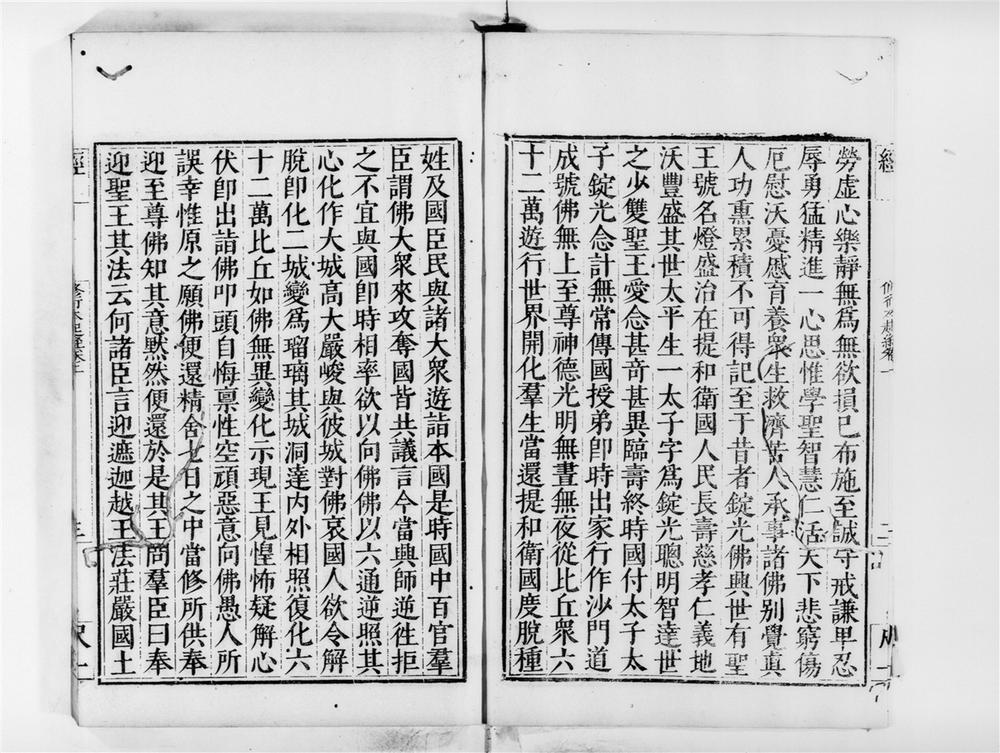 勞虛心樂靜無爲無欲損已布施至誠守戒謙卑忍
辱勇猛精進一心思惟學聖智慧仁活天下悲窮傷
厄慰沃憂慼育養衆生救濟苦人承事諸佛别覺眞
人功熏累積不可得記至于昔者錠光佛興世有聖
王號名燈盛治在提和衞國人民長壽慈孝仁義地
沃豐盛其世太平生一太子字爲錠光聰明智達世
之少雙聖王愛念甚竒甚異臨壽終時國付太子太
子錠光念計無常傳國授弟卽時出家行作沙門道
成號佛無上至尊神德光明無晝無夜從比丘衆六
十二萬遊行世界開化羣生當還提和衞國度脫種
姓及國臣民與諸大衆遊詣本國是時國中百官羣
臣謂佛大衆來攻奪國皆共議言今當興師逆徃拒
之不宜與國卽時相率欲以向佛佛以六通逆照其
心化作大城高大嚴峻與彼城對佛哀國人欲令解
脫卽化二城變爲瑠璃其城洞達內外相照復化六
十二萬比丘如佛無異變化示現王見惶怖疑解心
伏卽出詣佛叩頭自悔禀性空頑惡意向佛愚人所
誤幸惟原之願佛便還精舍七日之中當修所供奉
迎至尊佛知其意默然便還於是其王問羣臣曰奉
迎聖王其法云何諸臣言迎遮迦越王法莊嚴國土
經
三